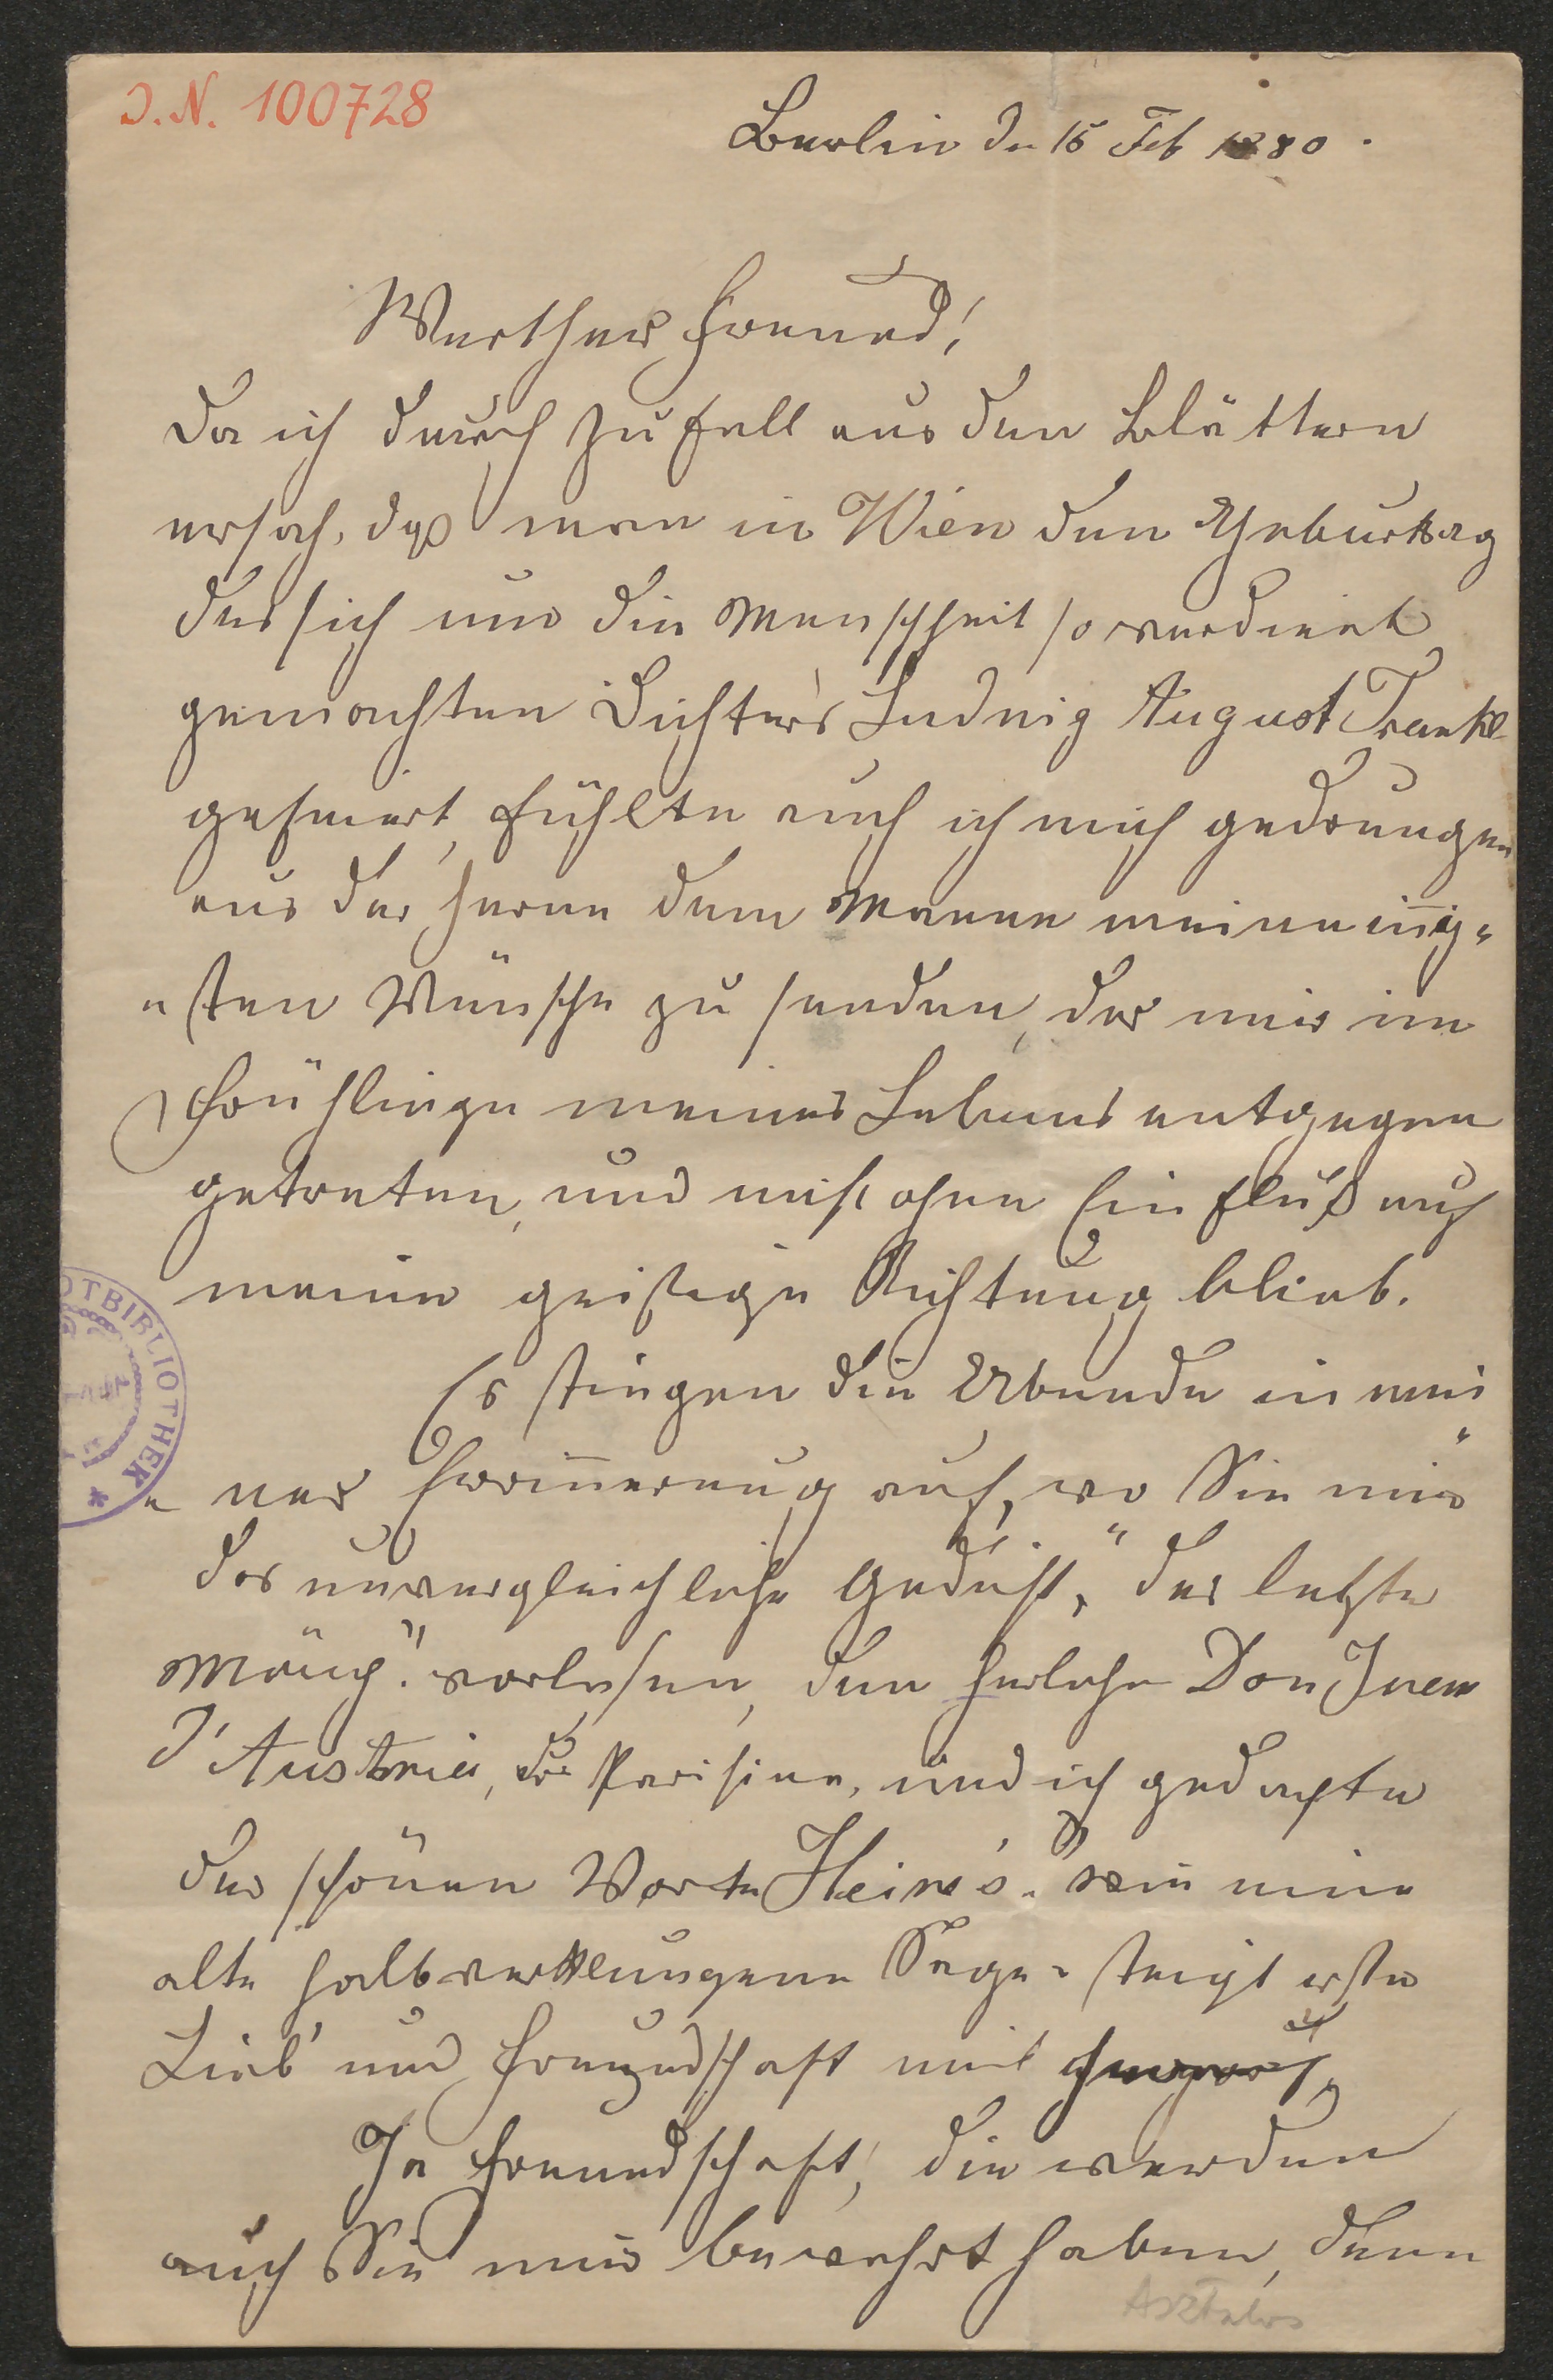 J. N. 100728
Berlin den 15 Feb 1880.
Werther Freund!
Da ich durch Zufall aus den Blättern
ersah, daß man in Wien den Geburtstag
des sich um die Menschheit so verdient
gemachten Dichter's Ludwig August Frankl
gefeiert, fühlte auch ich mich gedrungen
aus der Ferne dem Manne meine iñig„
„sten Wünsche zu senden, der mir im
Frühlinge meines Lebens entgegen
getreten, und nicht ohne Einfluß auf
meine geistige Richtung blieb.
Es stiegen die Abende in mei
„ner Eriñerung auf, wo Sie mir
das unvergleichliche Gedicht, "der letzte
Mönch" vorlasen, den herlichen Don Juan
d'Austria, die Parisina, und ich gedachte
der schönen Worte Heine's: wie eine
alte halbverklungene Sage - steigt erste
Lieb' und Freundschaft mit
Ja Freundschaft, die werden
auch Sie mir bewahrt haben, denn
OTBIBLIOTHEK *